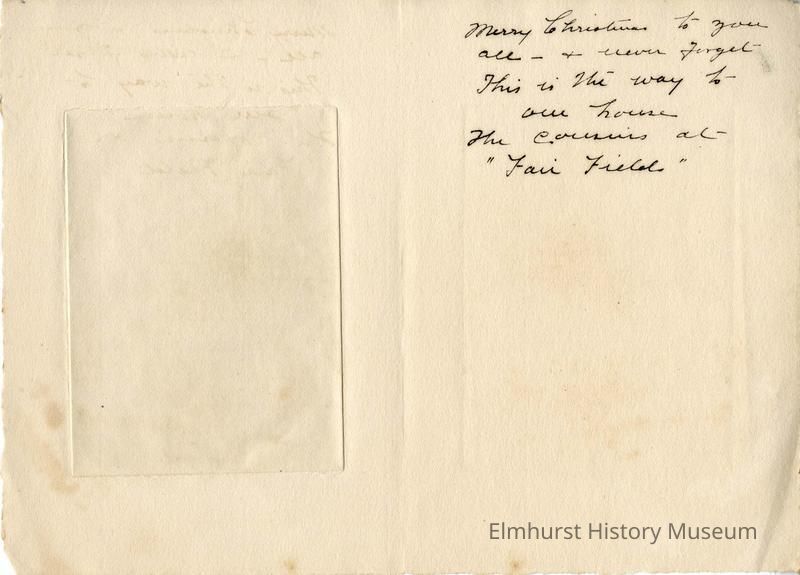 Merry Christmas to you
all - & never forget
This is the way to
our house
The Cousins at
"Fair Fields"
Elmhurst History Museum